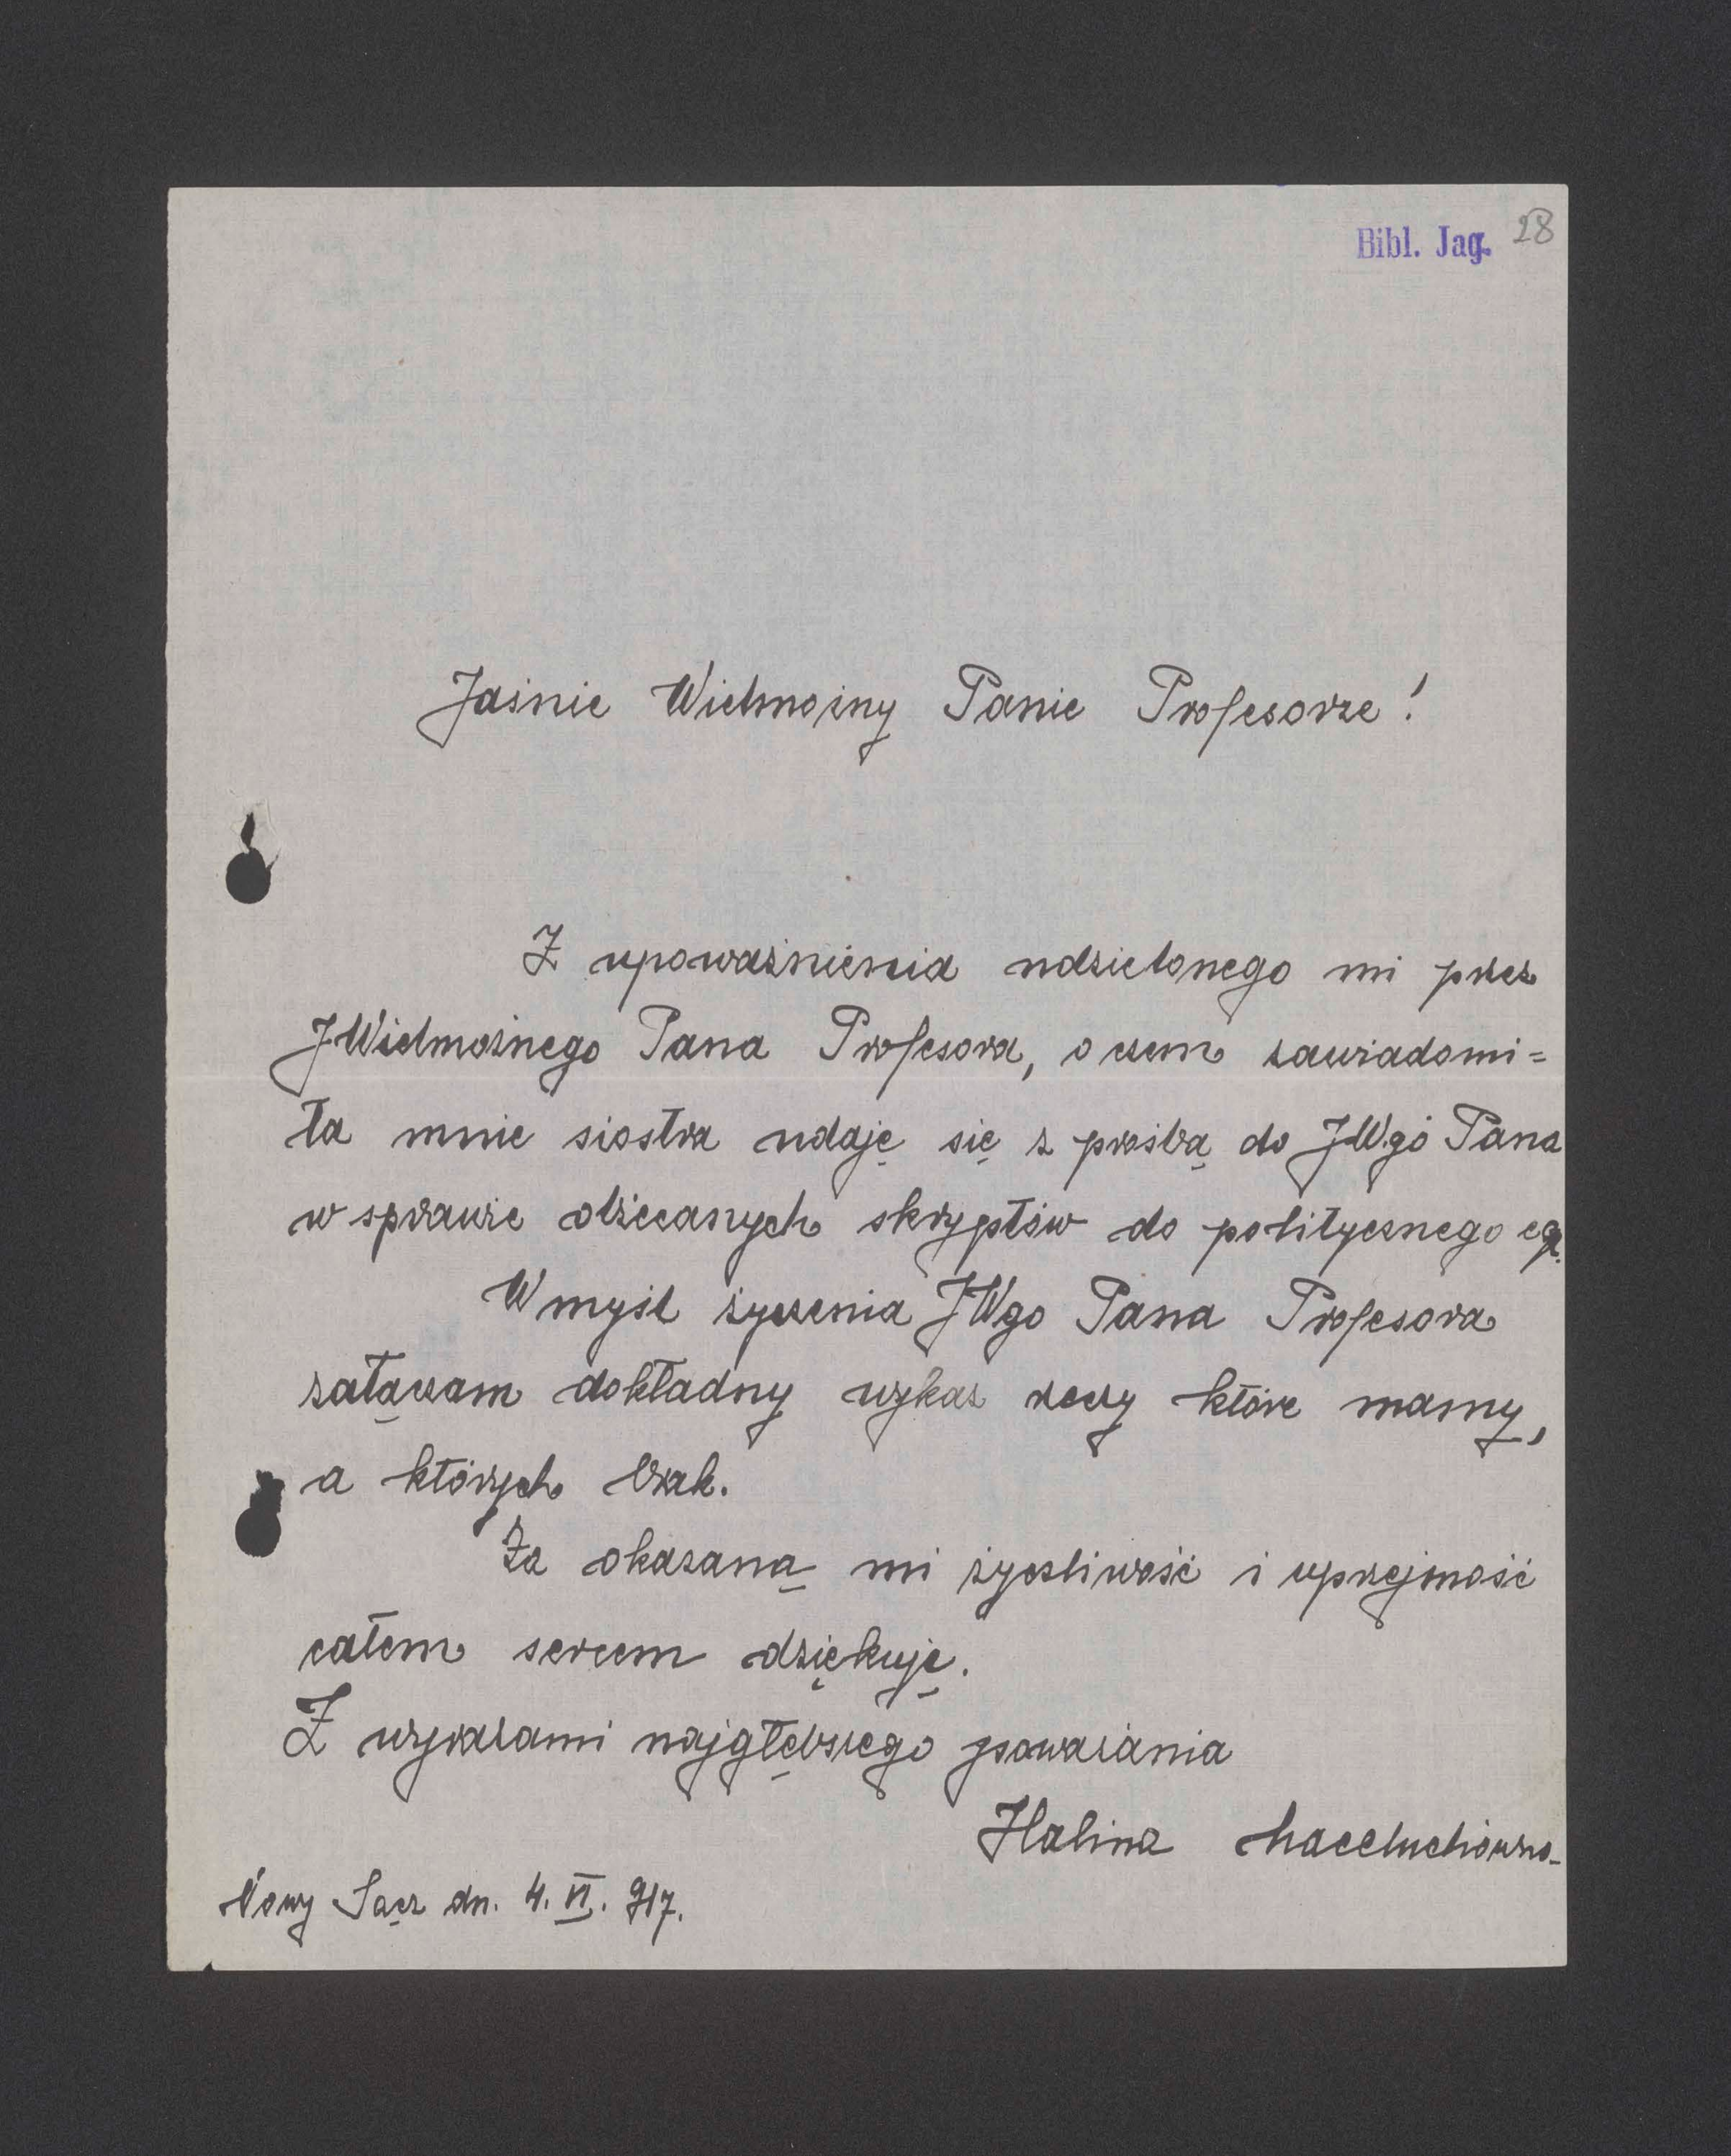 Bibl. Jag. 28
Jaśnie Wielmożny Panie Profesorze!
Z upoważnienia udzielonego mi przez
JWielmożnego Pana Profesora, o czem zawiadomi=
ła mnie siostra udaję się z prośbą do JWgo Pana
w sprawie obiecanych skryptów do politycznego eg.
W myśl życzenia JWgo Pana Profesora
załączam dokładny wykaz rzeczy które mamy,
a których brak.
Za okazaną mi życzliwość i uprzejmość
całem sercem dziękuję.
Z wyrazami najgłębszego poważania
Halina
Nowy Sącz dn. 4. VI. 917.